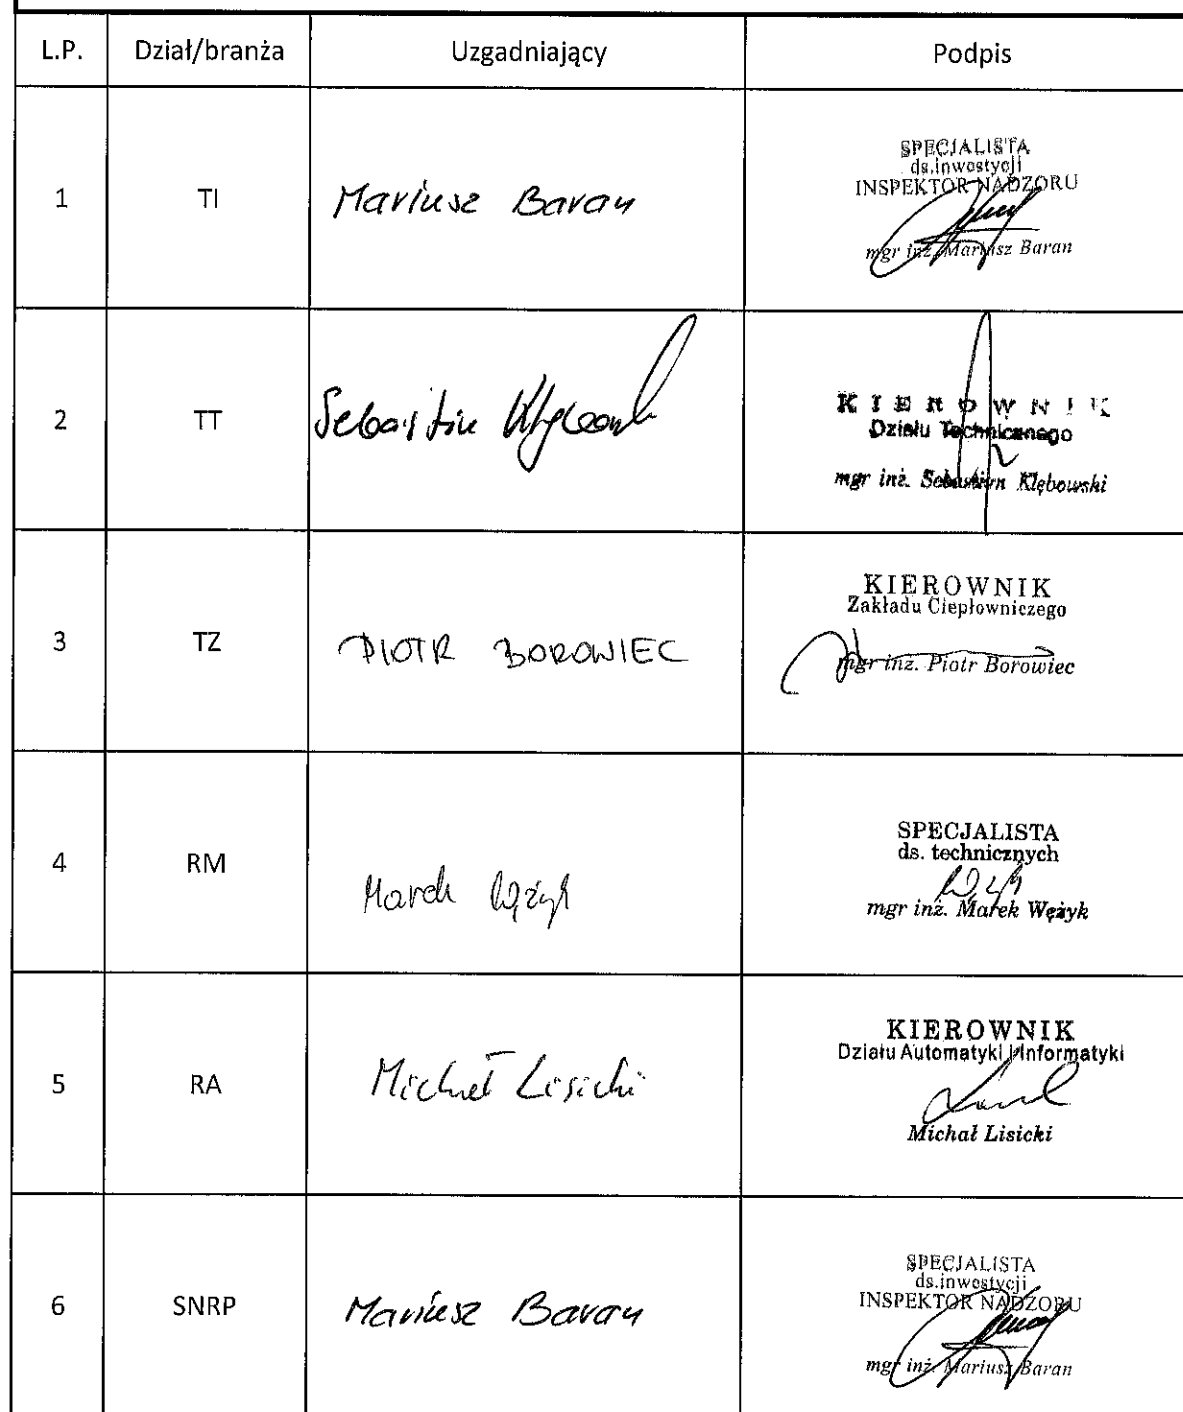 L.P. Dział/branża Uzgadniający Podpis
1 TI Mariusz Baran
SPECJALISTA
ds.inwestycji
INSPEKTOR NADZORU
mgr inż. Mariusz Baran
2 TT Sebastian
KIEROWNIK
Działu Technicznego
mgr inż. Sebastian Klębowski
3 TZ PIOTR BOROWIEC
KIEROWNIK
Zakładu Ciepłowniczego
mgr inż. Piotr Borowiec
4 RM Marek Wężyk
SPECJALISTA
ds. technicznych
mgr inż. Marek Wężyk
5 RA Michał Lisicki
KIEROWNIK
Działu Automatyki i Informatyki
Michał Lisicki
6 SNRP Mariusz Baran
SPECJALISTA
ds.inwestycji
INSPEKTOR NADZORU
mgr inż. Mariusz Baran